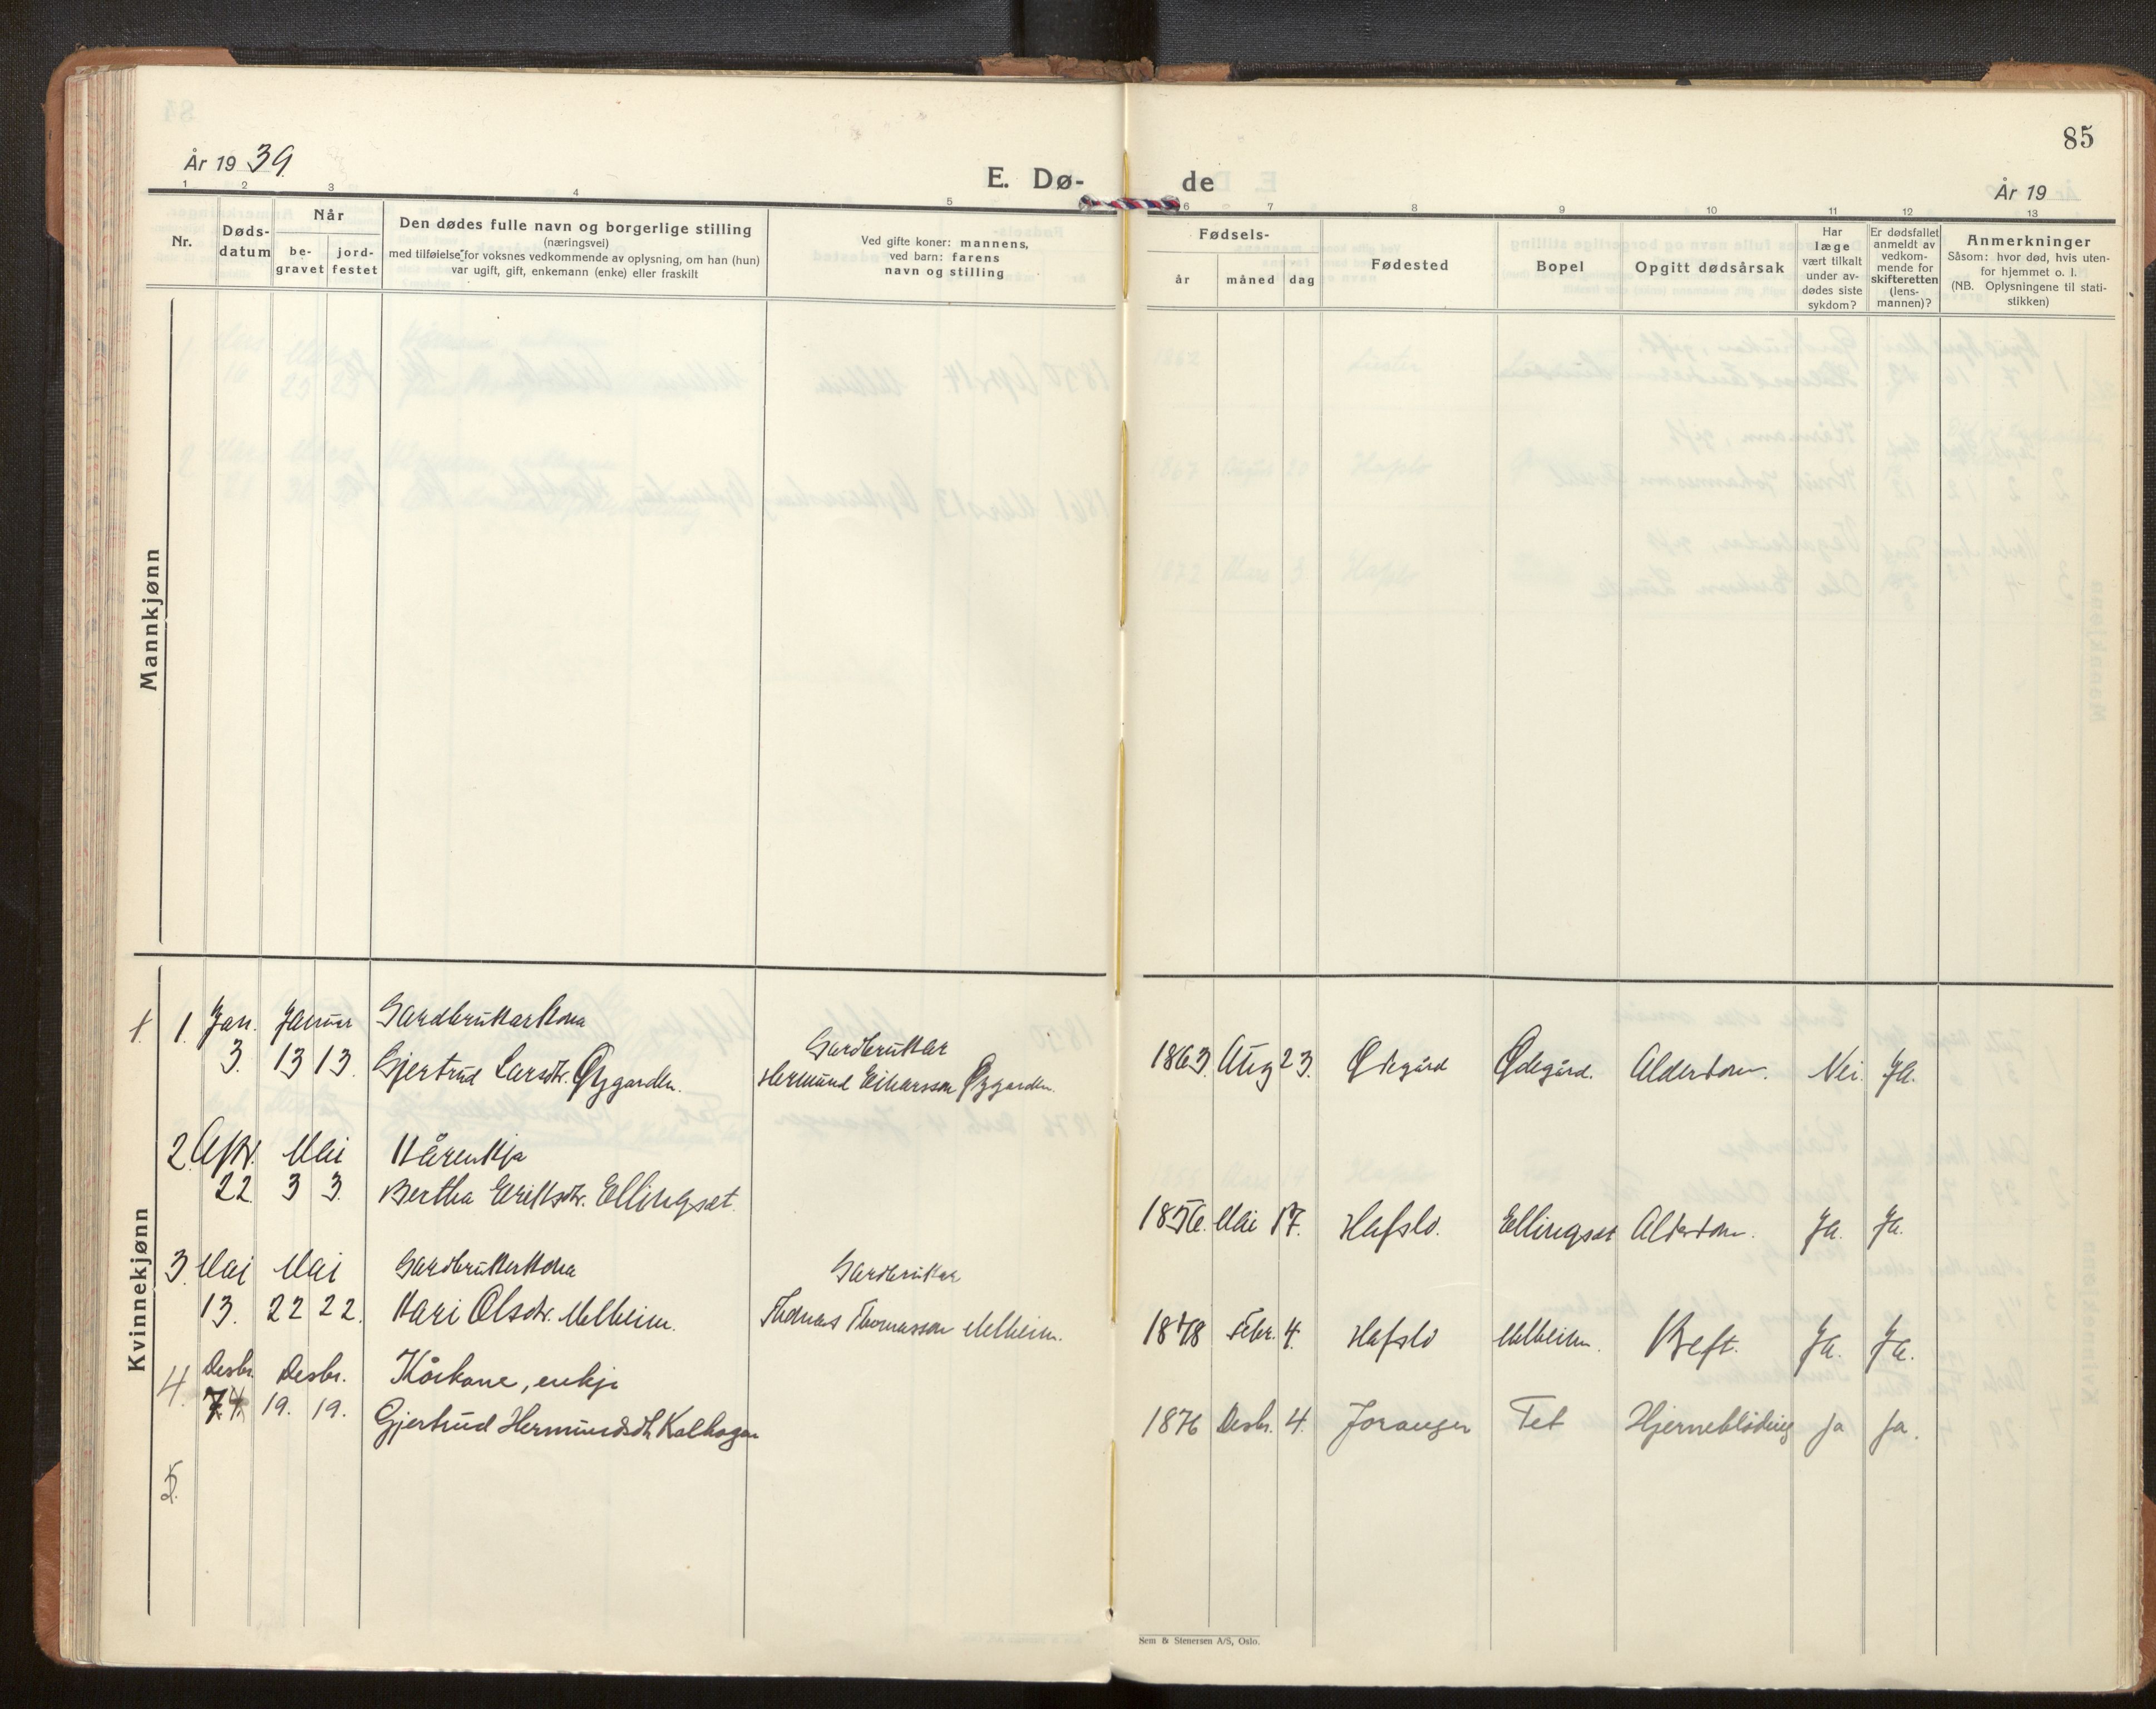 85
År 19 39.
E. Dø- de
År 19
1 2 3 4 5 6 7 8 9 10 11 12 13
Nr.
Døds-
datum
Når
be-
gravet
jord-
festet
Den dødes fulle navn og borgerlige stilling
(næringsvei)
med tilføielse for voksnes vedkommende av oplysning, om han (hun)
var ugift, gift, enkemann (enke) eller fraskilt
Ved gifte koner: mannens,
ved barn: farens
navn og stilling
Fødsels-
år måned dag
Fødested
Bopel
Opgitt dødsårsak
Har
læge
vært tilkalt
under av-
dødes siste
sykdom?
Er dødsfallet
anmeldt av
vedkom-
mende for
skifteretten
(lens-
mannen)?
Anmerkninger
Såsom: hvor død, hvis uten-
for hjemmet o. l.
(NB. Oplysningene til stati-
stikken)
Mannkjønn
Kvinnekjønn
1. Jan. Januar Gardbrukarkona Gardbrukar
3. 13 13. Gjertrud Larsdtr. Øygarden. Hermund Einarsson Øygarden. 1863. Aug 23. Ødegård Ødegård. Alderdom. Nei. Ja.
2. Apr. Mai Kårenkja
22 3 3. Bertha Eriksdtr. Ellingsæt. 1856. Mai 17. Hafslo. Ellingsæt Alderdom. Ja. Ja.
3. Mai Mai Gardbrukerkona Gardbrukar
13. 22 22. Kari Olsdtr. Melheim. Thomas Thomasson Melheim. 1878 Febr. 4. Hafslo Melheim. Ja. Ja.
4. Desbr. Desbr. Kårkone, enkje
19. 19. Gjertrud Hermundsdtr. Kalhagen 1876 Desbr. 4. Joranger Tet Hjerneblødning Ja Ja.
5.
Sem & Stenersen A/S, Oslo.